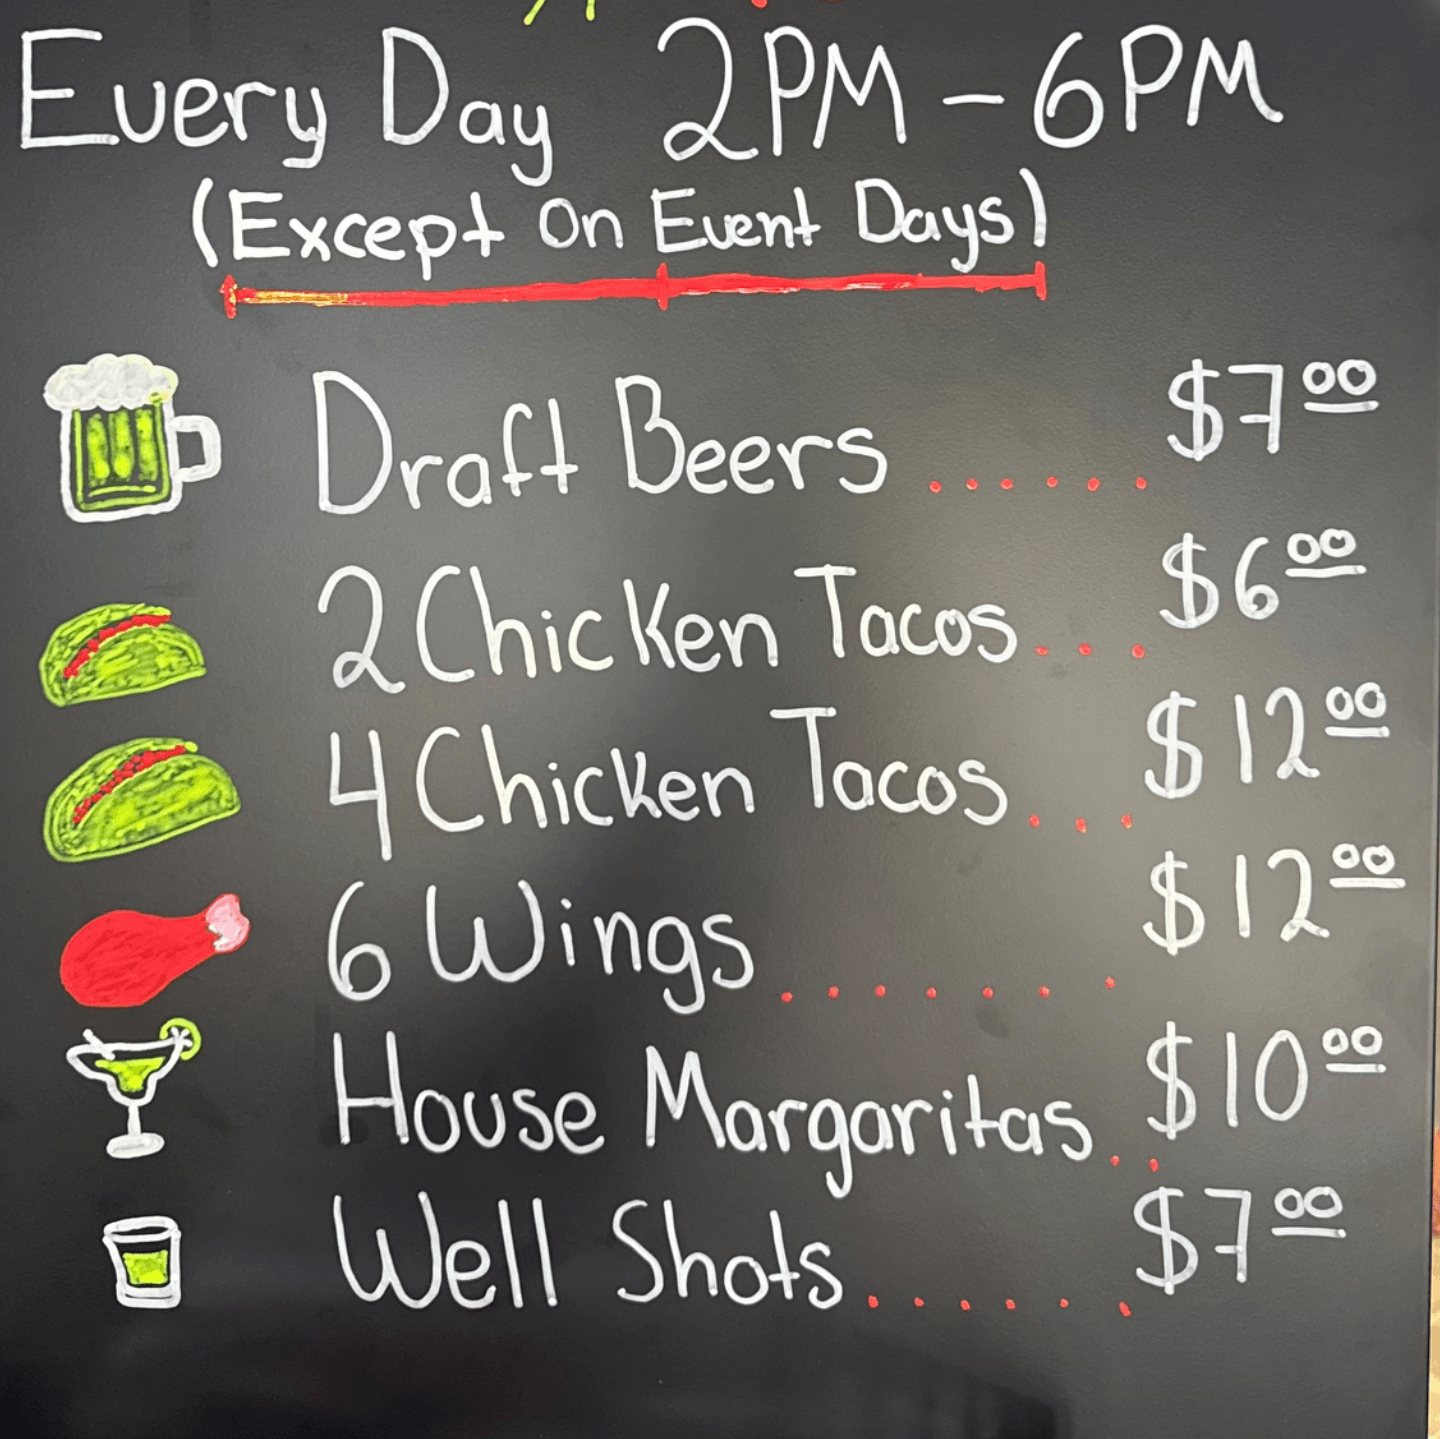 Every Day 2PM - 6PM
(Except On Event Days)
Draft Beers ...... $7.00
2 Chicken Tacos ... $6.00
4 Chicken Tacos ... $12.00
6 Wings ....... $12.00
House Margaritas .. $10.00
Well Shots ...... $7.00